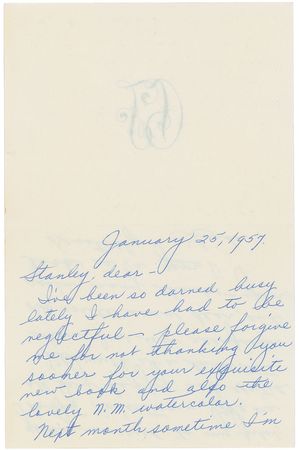 January 25, 1957.
Stanley, dear -
I've been so darned busy
lately I have had to be
neglectful - please forgive
me for not thanking you
sooner for your exquisite
new book and also the
lovely N.M. watercolor.
Next month sometime I'm